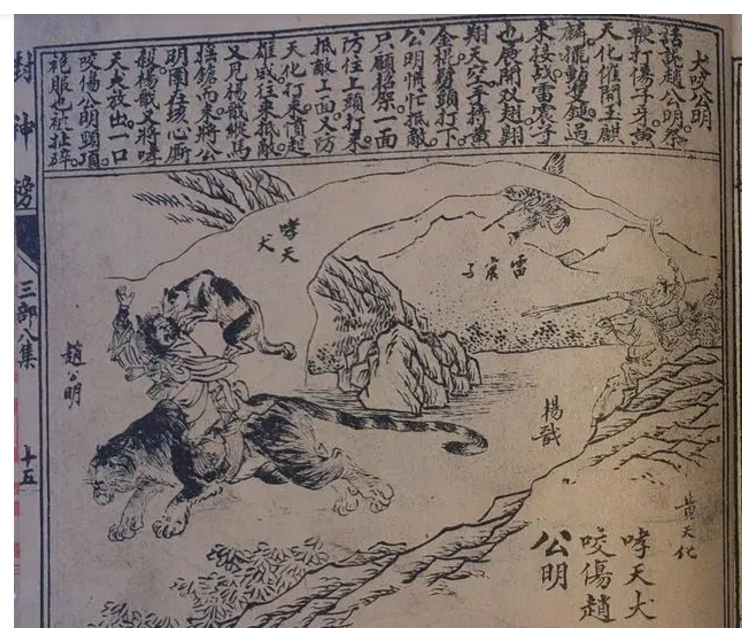 犬咬公明
話說趙公明祭
鞭打傷子牙黃
天化催開玉麒
麟擺動雙鎚過
來接战雷震子
也展開双翅翱
翔天空手持黃
金棍劈頭打下
公明慌忙抵敵
只顧招架一面
防住上頭打來
抵敵上面又防
天化打來憤起
雄威往來抵敵
又見楊戩縱馬
搖鎗而來將公
明圍在垓心厮
殺楊戩又將哮
天犬放出一口
咬傷公明頸項
袍服也被扯碎
雷震子
哮天犬
楊戩
黃天化
趙公明
哮天犬
咬傷趙
公明
封神榜
三部八集
十五